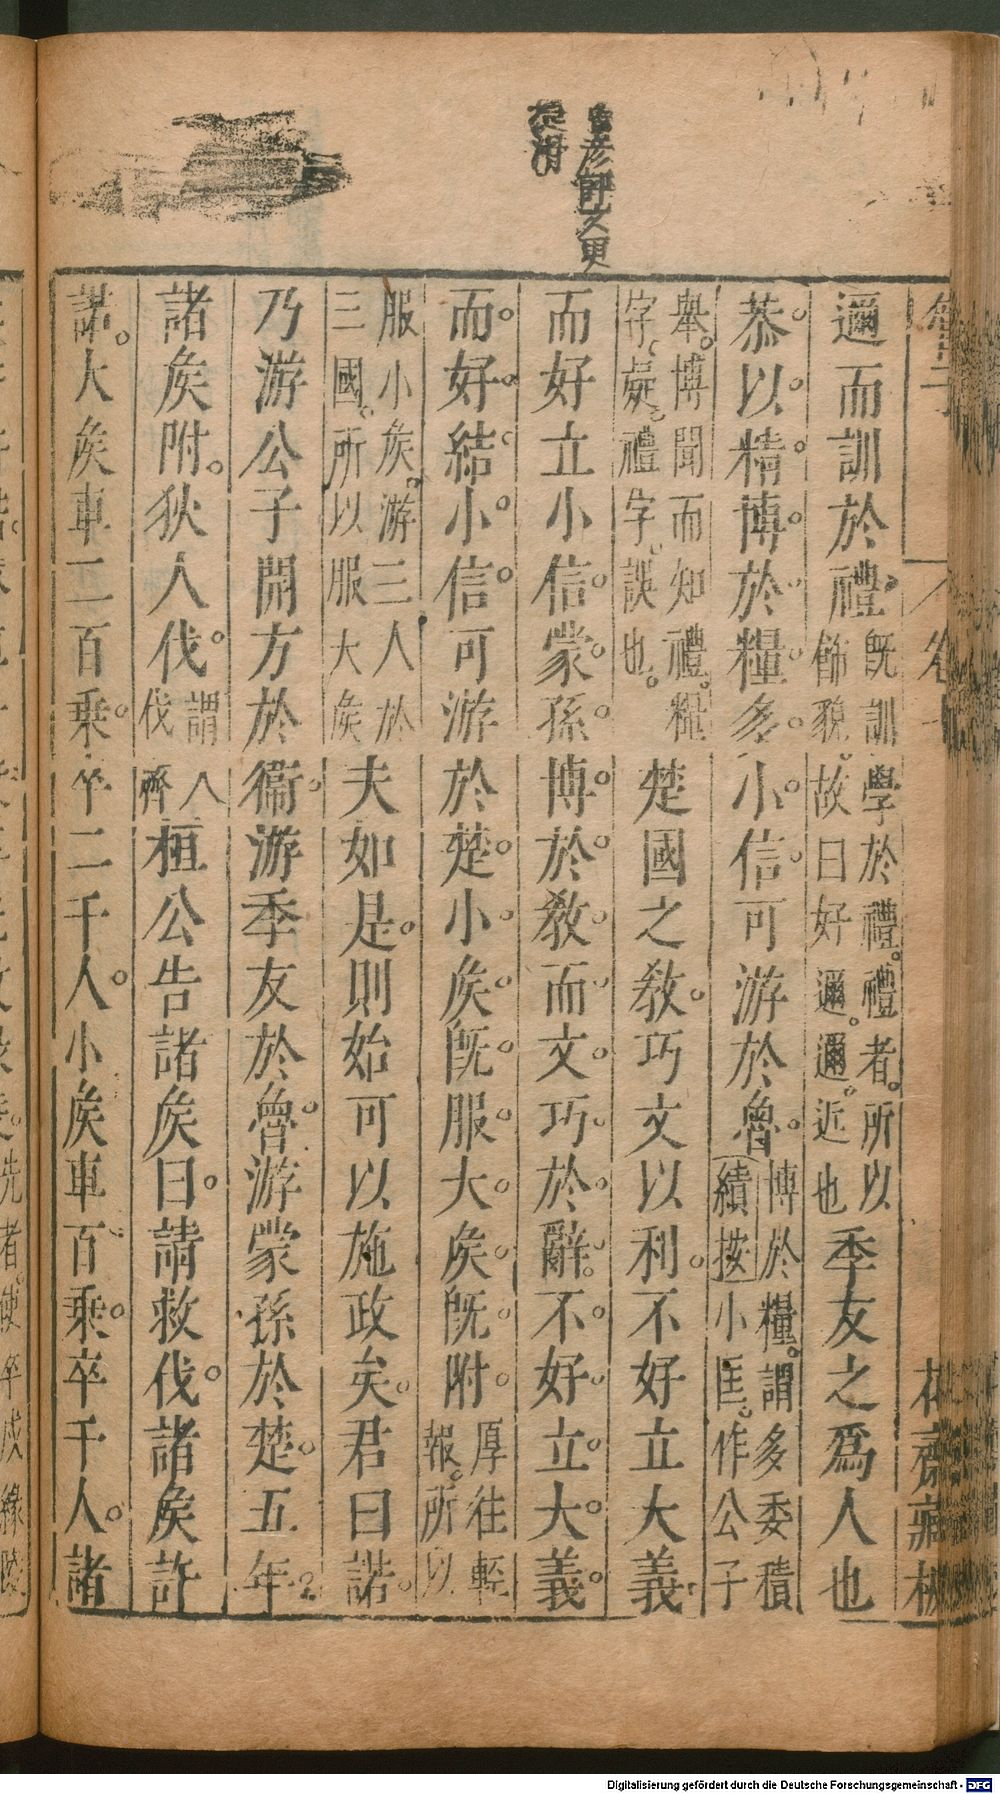 管子 卷 花齋藏板
邇而訓於禮。既訓學於禮。禮者。所以飾貌。故曰好邇。邇。近也季友之爲人也
恭。以。精。博。於。糧。多。小。信。可游於魯。博於糧。謂多委積續按小匡。作公子
舉。博聞而知禮。糧字。疑。禮字。誤也。楚國之教。巧文以利。不好立大義
而好立小信。蒙。孫。博。於。教。而。文。巧。於。辭。不。好。立。大。義。
而。好。結。小。信。可游於楚。小。矦。既。服。大。矦。既。附。厚往輕報。所以
服小矦。游三人於三國。所以服大矦夫如是。則始可以施政矣。君曰諾。
乃游公子開方於衞。游季友於魯。游蒙孫於楚。五年。
諸矦附。狄人伐。謂伐齊桓公告諸矦曰。請救伐。諸矦許
諾。大矦車二百乘。卒二千人。小矦車百乘。卒千人。諸
Digitalisierung gefördert durch die Deutsche Forschungsgemeinschaft - DFG